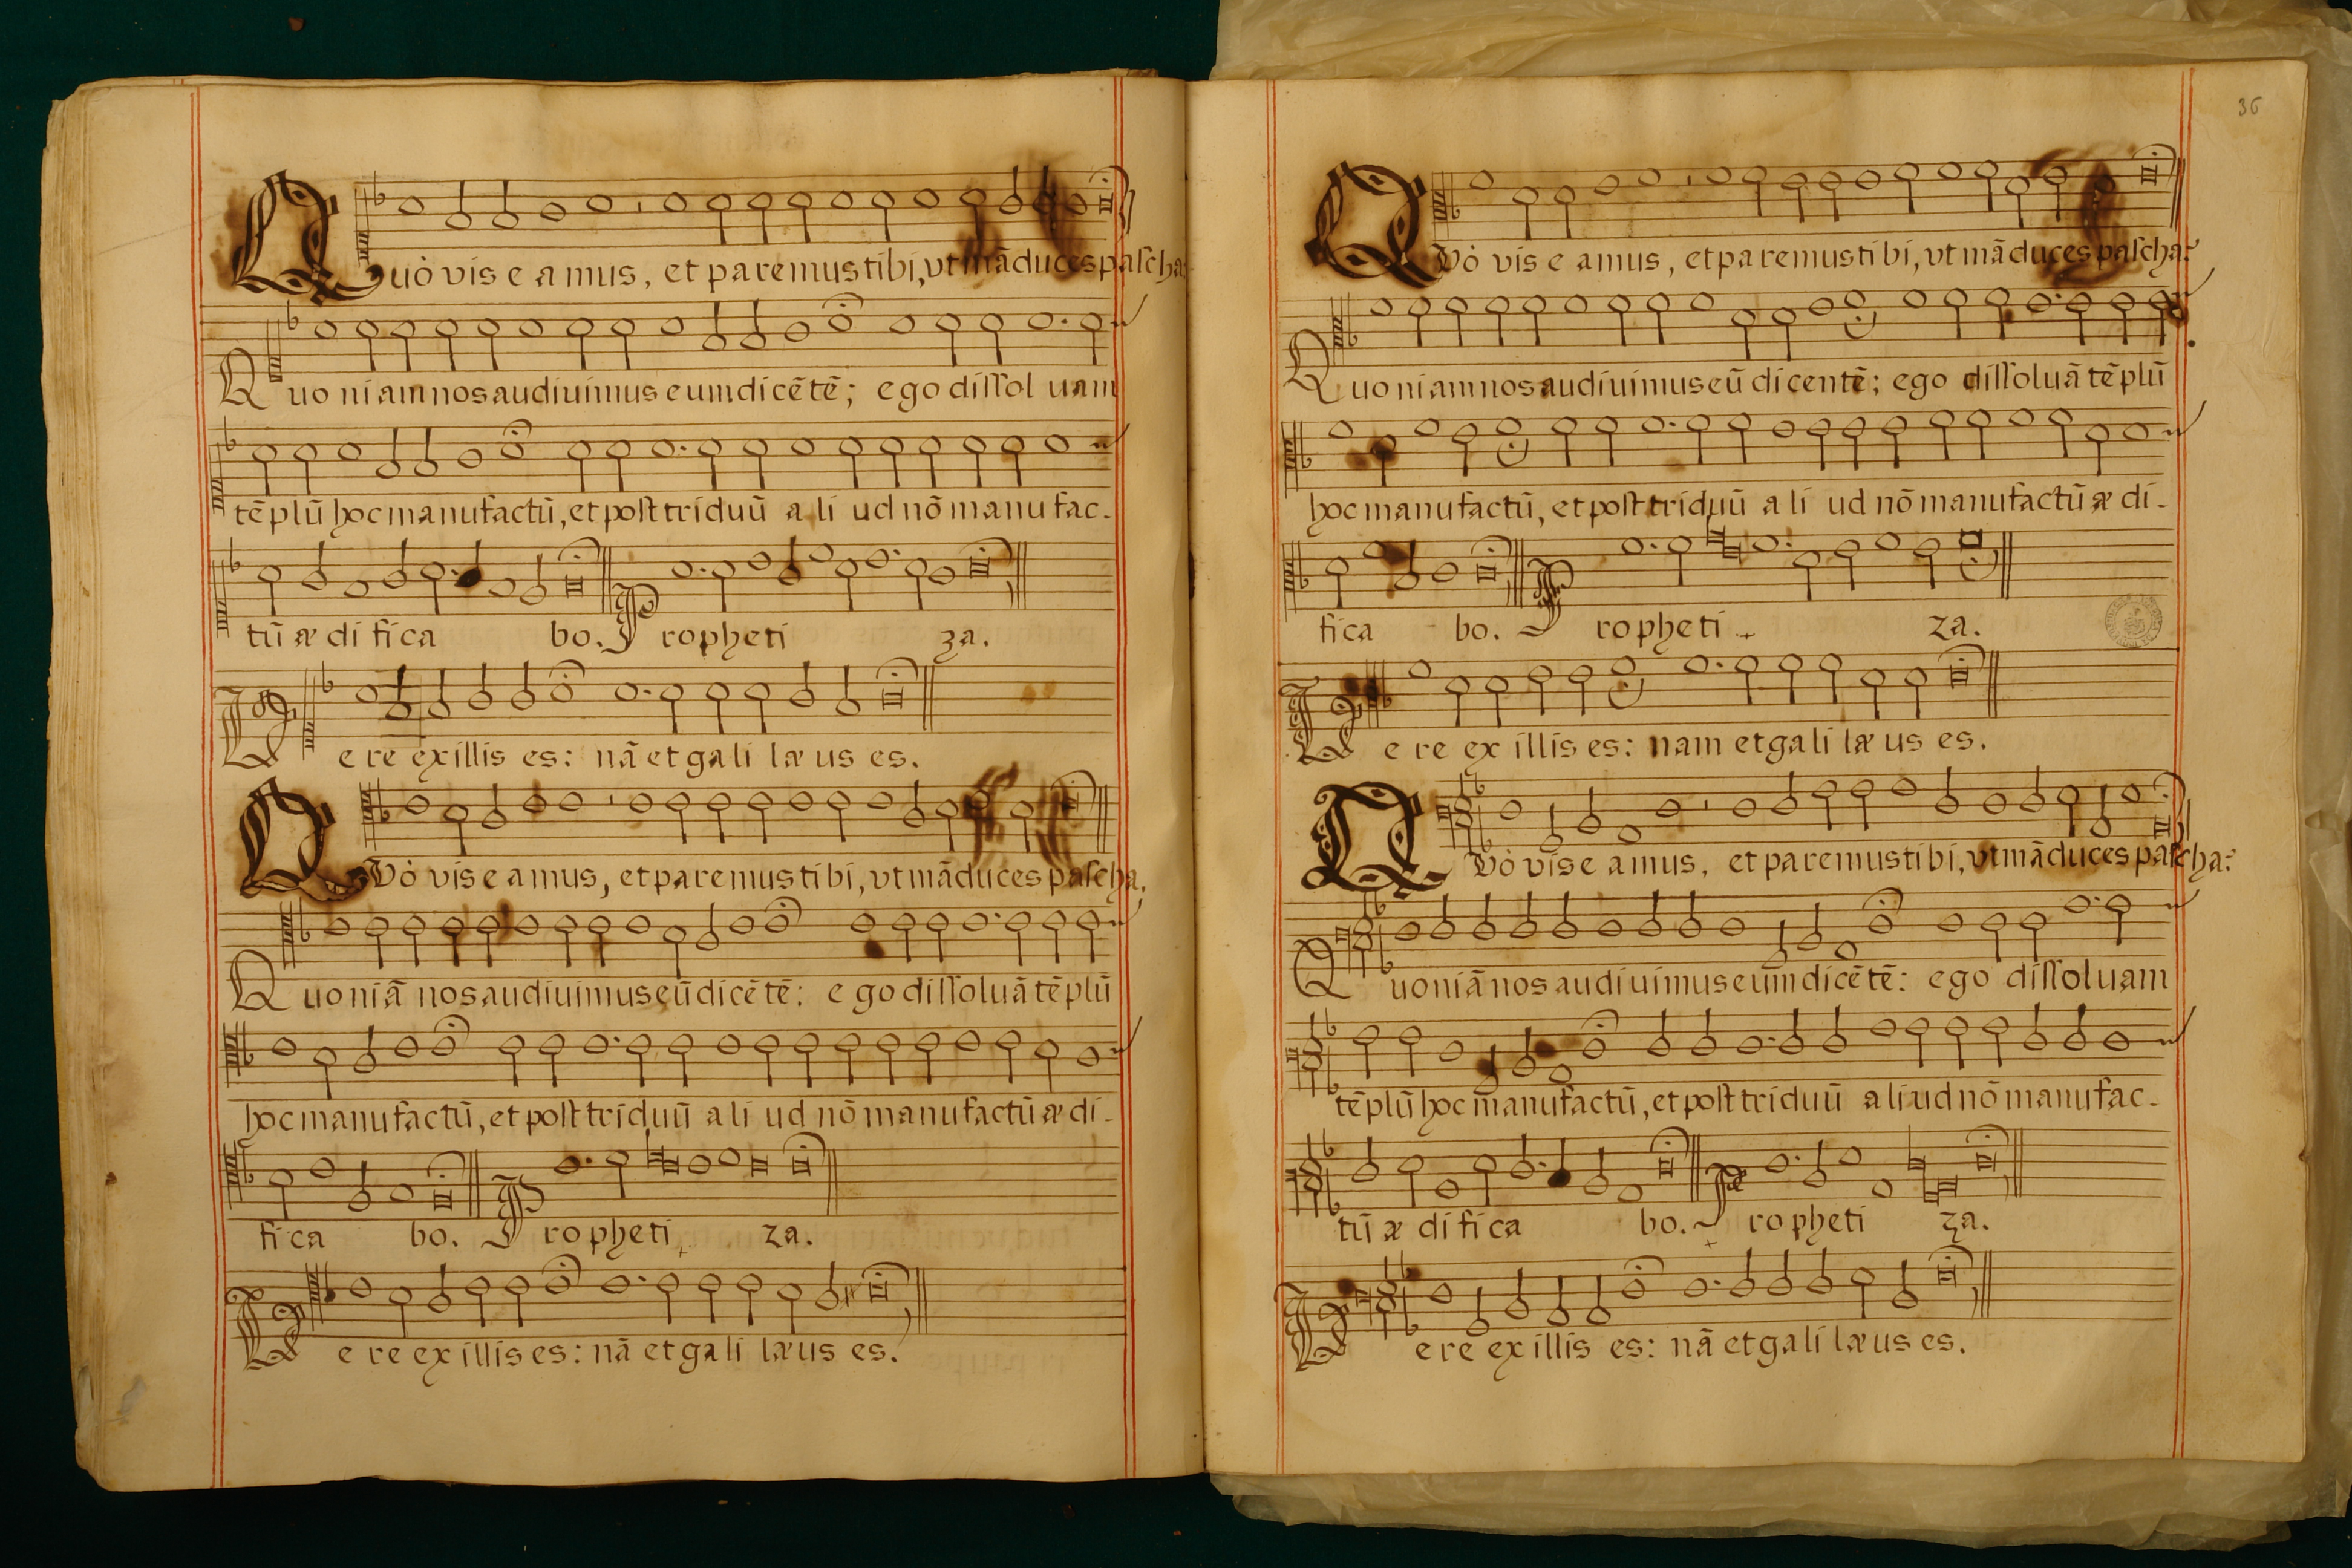 Quò vis eamus, et paremus tibi, vt mãduces pascha?
Quoniam nos audiuimus eum dicẽtẽ; ego dissoluam
tẽplũ hoc manufactũ, et post triduũ aliud nõ manufac-
tũ ædificabo. Prophetiza.
Vere ex illis es: nã et galilæus es.
QVò vis eamus, et paremus tibi, vt mãduces pascha.
Quoniã nos audiuimus eũ dicẽtẽ: ego dissoluã tẽplũ
hoc manufactũ, et post triduũ aliud nõ manufactũ ædi-
ficabo. Prophetiza.
Vere ex illis es: nã et galilæus es.
36
QVò vis eamus, et paremus tibi, vt mãduces pascha?
Quoniam nos audiuimus eũ dicentẽ; ego dissoluã tẽplũ
hoc manufactũ, et post triduũ aliud nõ manufactũ ædi-
ficabo. Prophetiza.
Vere ex illis es: nam et galilæus es.
QVò vis eamus, et paremus tibi, vt mãduces pascha?
Quoniã nos audiuimus eum dicẽtẽ: ego dissoluam
tẽplũ hoc manufactũ, et post triduũ aliud nõ manufac-
tũ ædificabo. Prophetiza.
Vere ex illis es: nã et galilæus es.